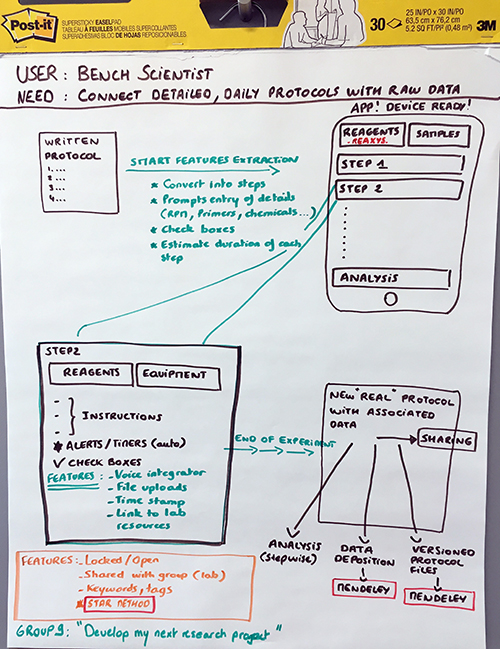 Post-it
SUPERSTICKY EASEL PAD
TABLEAU À FEUILLES MOBILES SUPERCOLLANTES
SUPERADHESIVAS BLOC DE HOJAS REPOSICIONABLES
30
25 IN/PO x 30 IN/PO
63,5 cm x 76,2 cm
5.2 SQ FT/PP (0,48 m²)
3M
USER : BENCH SCIENTIST
NEED : CONNECT DETAILED, DAILY PROTOCOLS WITH RAW DATA
APP! DEVICE READY!
WRITTEN
PROTOCOL
1....
2 ...
3 ...
4...
SMART FEATURES EXTRACTION
* Convert into steps
* Prompts entry of details
(RPM, Primers, chemicals...)
* Check boxes
* Estimate duration of each
step
REAGENTS
. REAXYS.
SAMPLES
STEP 1
STEP 2
ANALYSIS
STEP2
REAGENTS
EQUIPMENT
- } INSTRUCTIONS
* ALERTS/TIMERS (auto)
✓ CHECK BOXES
FEATURES : - Voice integrator
- File uploads
- Time stamp
- Link to lab
resources
END OF EXPERIMENT
NEW "REAL" PROTOCOL
WITH ASSOCIATED
DATA
SHARING
ANALYSIS
(stepwise)
DATA
DEPOSITION
MENDELEY
VERSIONED
PROTOCOL
FILES
MENDELEY
FEATURES: - Locked/Open
- Shared with group (lab)
- Keywords, tags
* STAR METHOD
GROUP 9: "Develop my next research project"